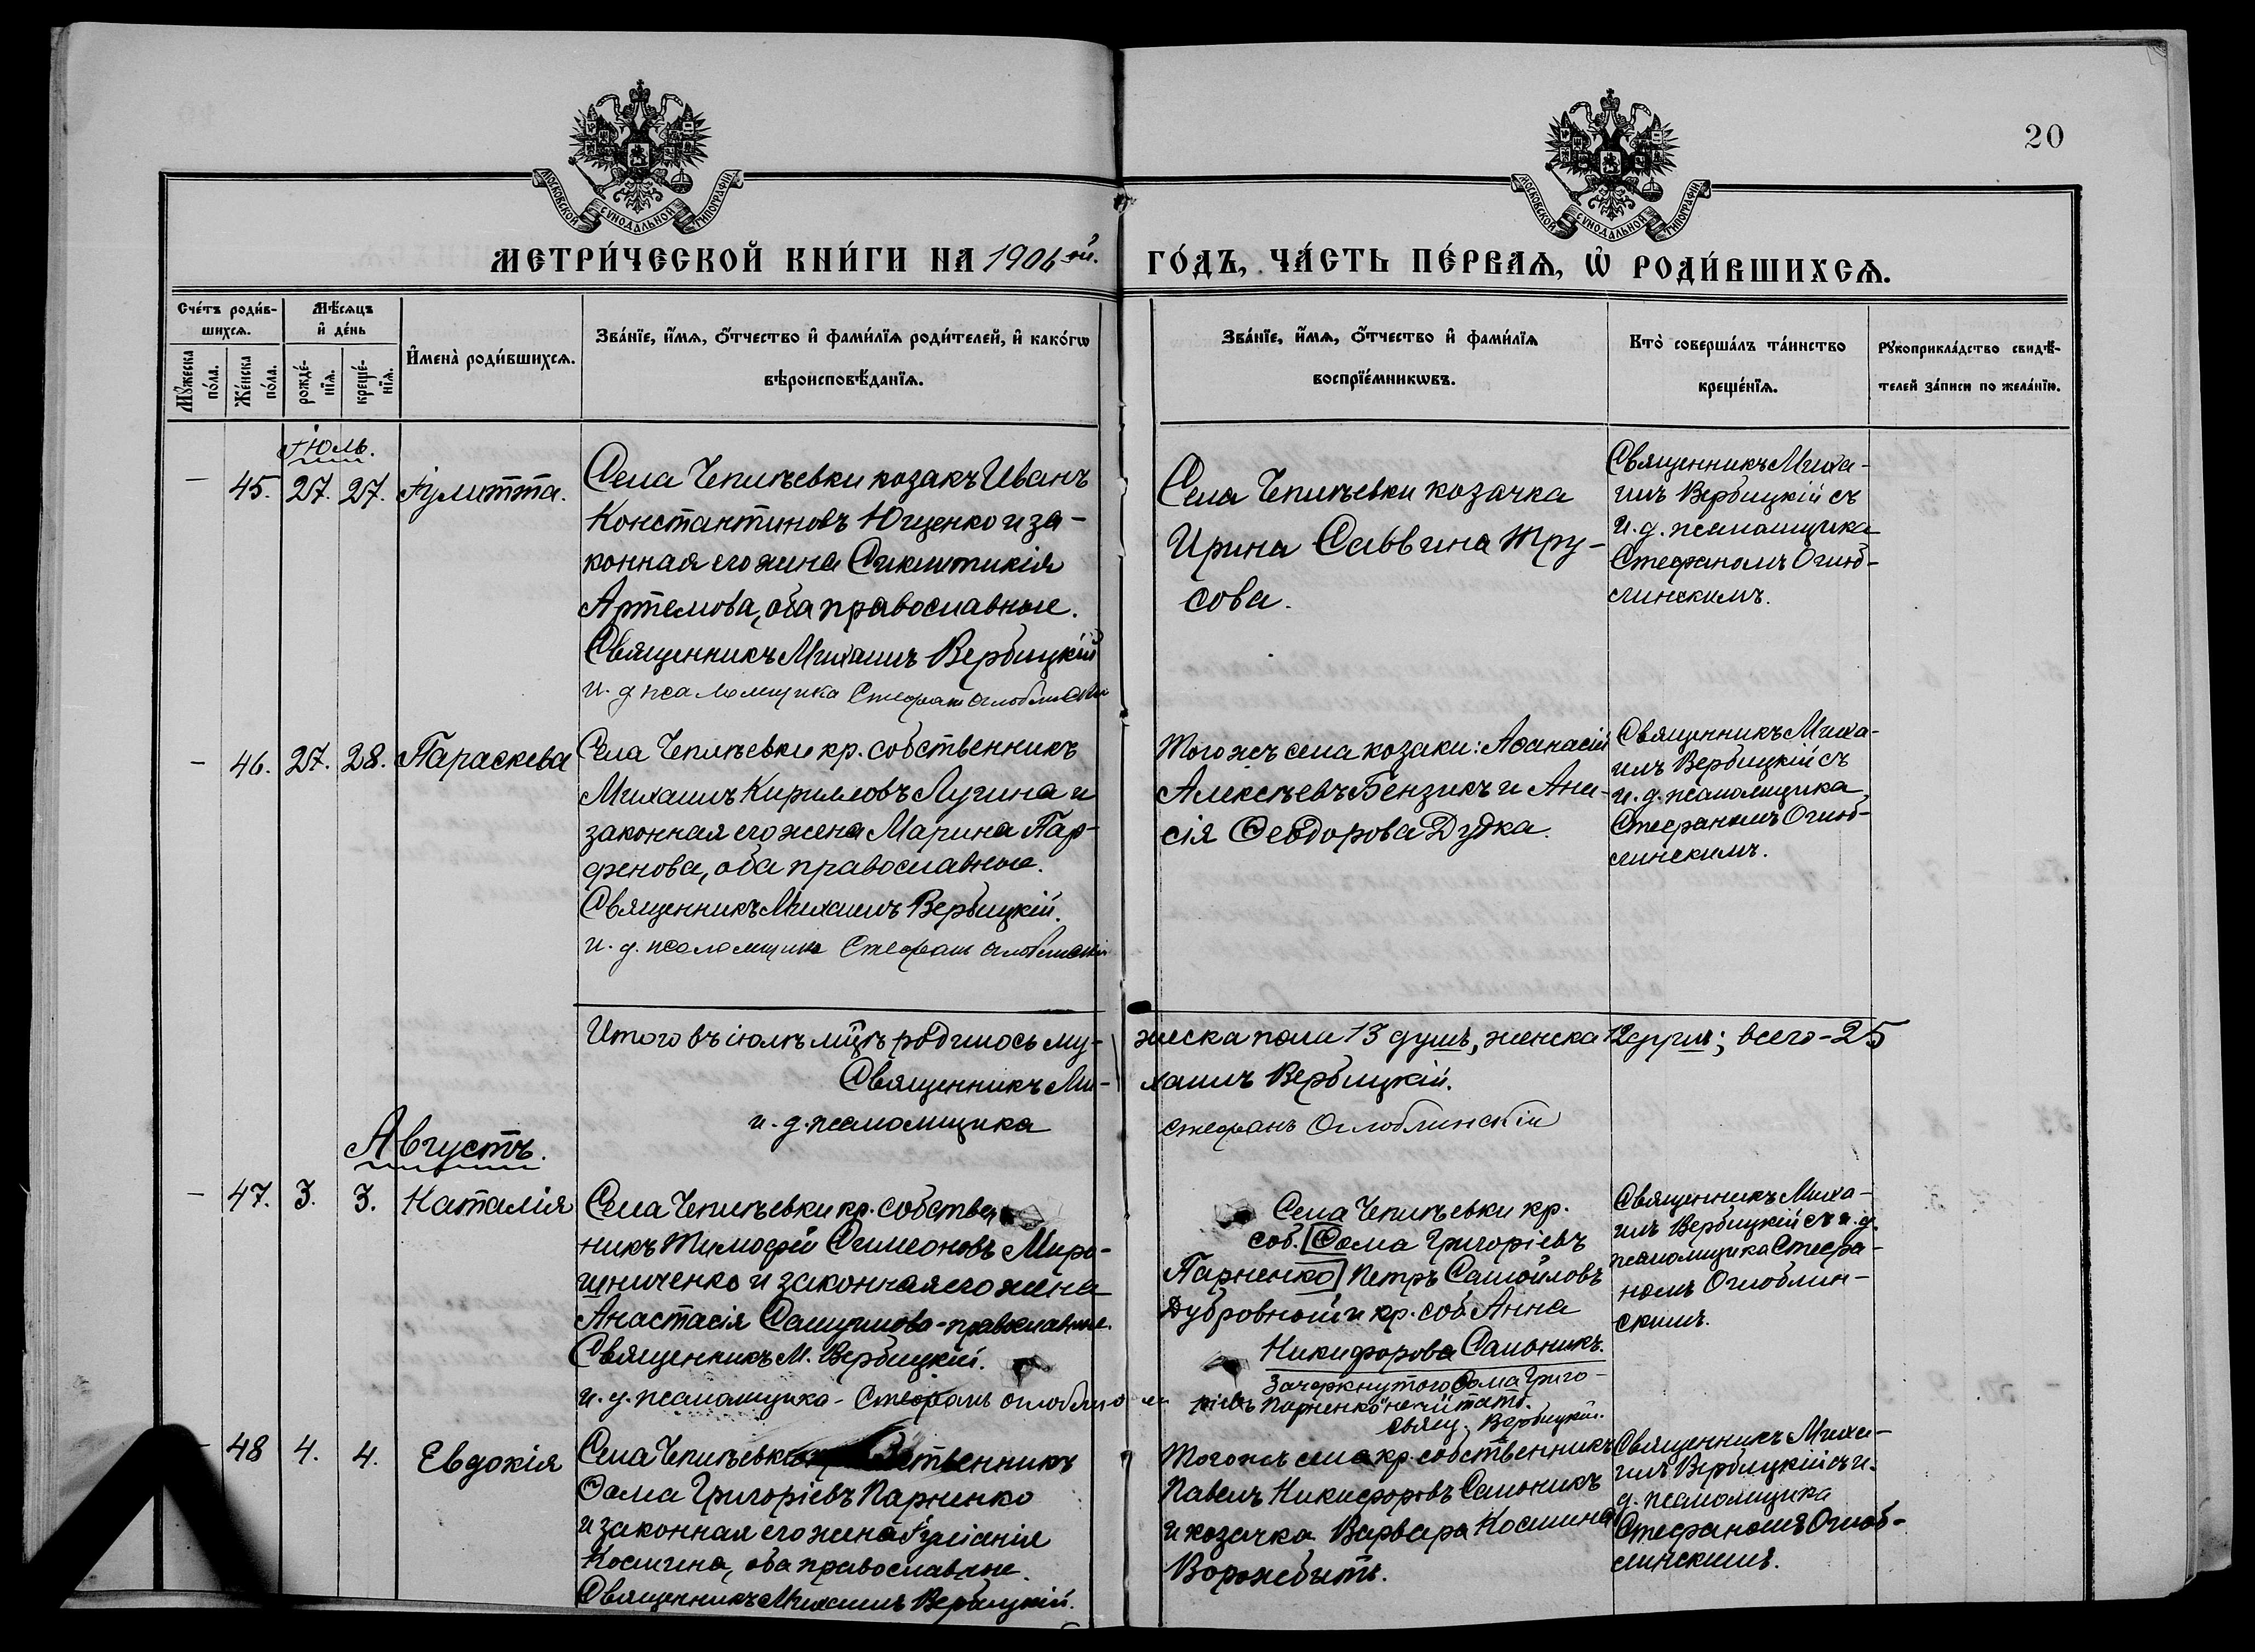 20
МОСКОВСКОЙ СѴНОДАЛЬНОЙ ТИПОГРАФІИ
МОСКОВСКОЙ СѴНОДАЛЬНОЙ ТИПОГРАФІИ
МЕТРИ́ЧЕСКОЙ КНИ́ГИ НА 1906 й. ГО́ДЪ, ЧА́СТЬ ПЕ́РВАѦ, Ѡ҆ РОДИ́ВШИХСѦ.
Сче́тъ роди́в-
шихсѧ.
Мꙋ́жеска по́ла.
Же́нска по́ла.
Мѣ́сѧцъ
и҆ де́нь
рожде́-
нїѧ.
креще́-
нїѧ.
И҆мена̀ роди́вшихсѧ.
Зва́нїе, и҆́мѧ, ѻ҆́тчество и҆ фами́лїѧ роди́телей, и҆ како́гѡ
вѣроисповѣ́данїѧ.
Зва́нїе, и҆́мѧ, ѻ҆́тчество и҆ фами́лїѧ
воспрїе́мникѡвъ.
Кто̀ соверша́лъ та́инство
креще́нїѧ.
Рꙋкоприкла́дство свидѣ́-
телей за́писи по жела́нїю.
Іюль.
— 45. 27. 27. Іулитта.
Села Чепилѣевки козакъ Иванъ
Константиновъ Ющенко и за-
конная его жена Синклитикія
Артемова, оба православные.
Священникъ Михаилъ Вербицкій
и. д. псаломщика Стефанъ Оглоблинскій
Села Чепилѣевки козачка
Ирина Саввина Тру-
сова.
Священникъ Миха-
илъ Вербицкій съ
и. д. псаломщика
Стефаномъ Оглоб-
линскимъ.
— 46. 27. 28. Параскева
Села Чепилѣевки кр. собственникъ
Михаилъ Кирилловъ Лугина и
законная его жена Марина Пар-
фенова, оба православные.
Священникъ Михаилъ Вербицкій.
и. д. псаломщика Стефанъ Оглоблинскій
Того жъ села козаки: Аѳанасій
Алексѣевъ Бензикъ и Ана-
сія Ѳеодорова Дудка.
Священникъ Миха-
илъ Вербицкій съ
и. д. псаломщика
Стефаномъ Оглоб-
линскимъ.
Итого въ іюлѣ м̃цѣ родилось му- жеска пола 13 душъ, женска 12 душъ; всего - 25
Священникъ Ми- хаилъ Вербицкій.
и. д. псаломщика Стефанъ Оглоблинскій
Августъ.
— 47. 3. 3. Наталія
Села Чепилѣевки кр. собствен
никъ Тимофей Симеоновъ Миро-
шниченко и законная его жена
Анастасія Самуилова - православные.
Священникъ М. Вербицкій.
и. д. псаломщика - Стефанъ
Села Чепилѣевки кр.
соб. [Ѳома Григорієвъ
Парненко] Петръ Самойловъ
Дубровный и кр. соб. Анна
Никифорова Сальникъ.
Зачеркнутого Ѳома Григо-
ріевъ Парненко не читать.
Свящ. Вербицкій.
Священникъ Миха-
илъ Вербицкій съ и. д.
псаломщика Стефа-
номъ Оглоблин-
скимъ.
— 48 4. 4. Евдокія
Села Чепилѣевки ственникъ
Ѳома Григоріевъ Парненко
и законная его жена Іуліанія
Косьмина, оба православные.
Священникъ Михаилъ Вербицкій.
Того жъ села кр. собственникъ
Павелъ Никифоровъ Сальникъ
и козачка Варвара Космина
Ворожбытъ.
Священникъ Миха-
илъ Вербицкій съ и.
д. псаломщика
Стефаномъ Оглоб-
линскимъ.